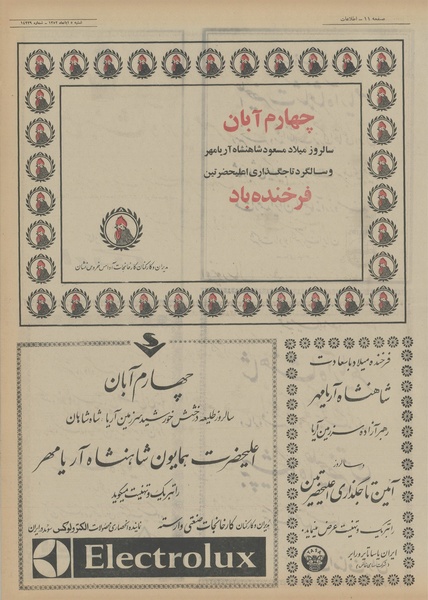 صفحه ۱۱ - اطلاعات
چهارم آبان
سالروز میلاد مسعود شاهنشاه آریامهر
و سالگرد تاجگذاری اعلیحضرتین
فرخنده باد
مدیران و کارکنان کارخانجات
فرخنده میلاد با سعادت
شاهنشاه آریامهر
رهبر آزاده سرزمین آریا
و سالروز
آئین تاجگذاری اعلیحضرتین
را تبریک و تهنیت عرض مینماید
ایران یاسا تایر و رابر
چهارم آبان
سالروز طلیعه درخشش خورشید سرزمین آریا شاه شاهان
اعلیحضرت همایون شاهنشاه آریامهر
را تبریک و تهنیت میگوید
مدیران و کارکنان کارخانجات صنعتی وابسته
نماینده انحصاری محصولات الکترولوکس سوئد در ایران
Electrolux